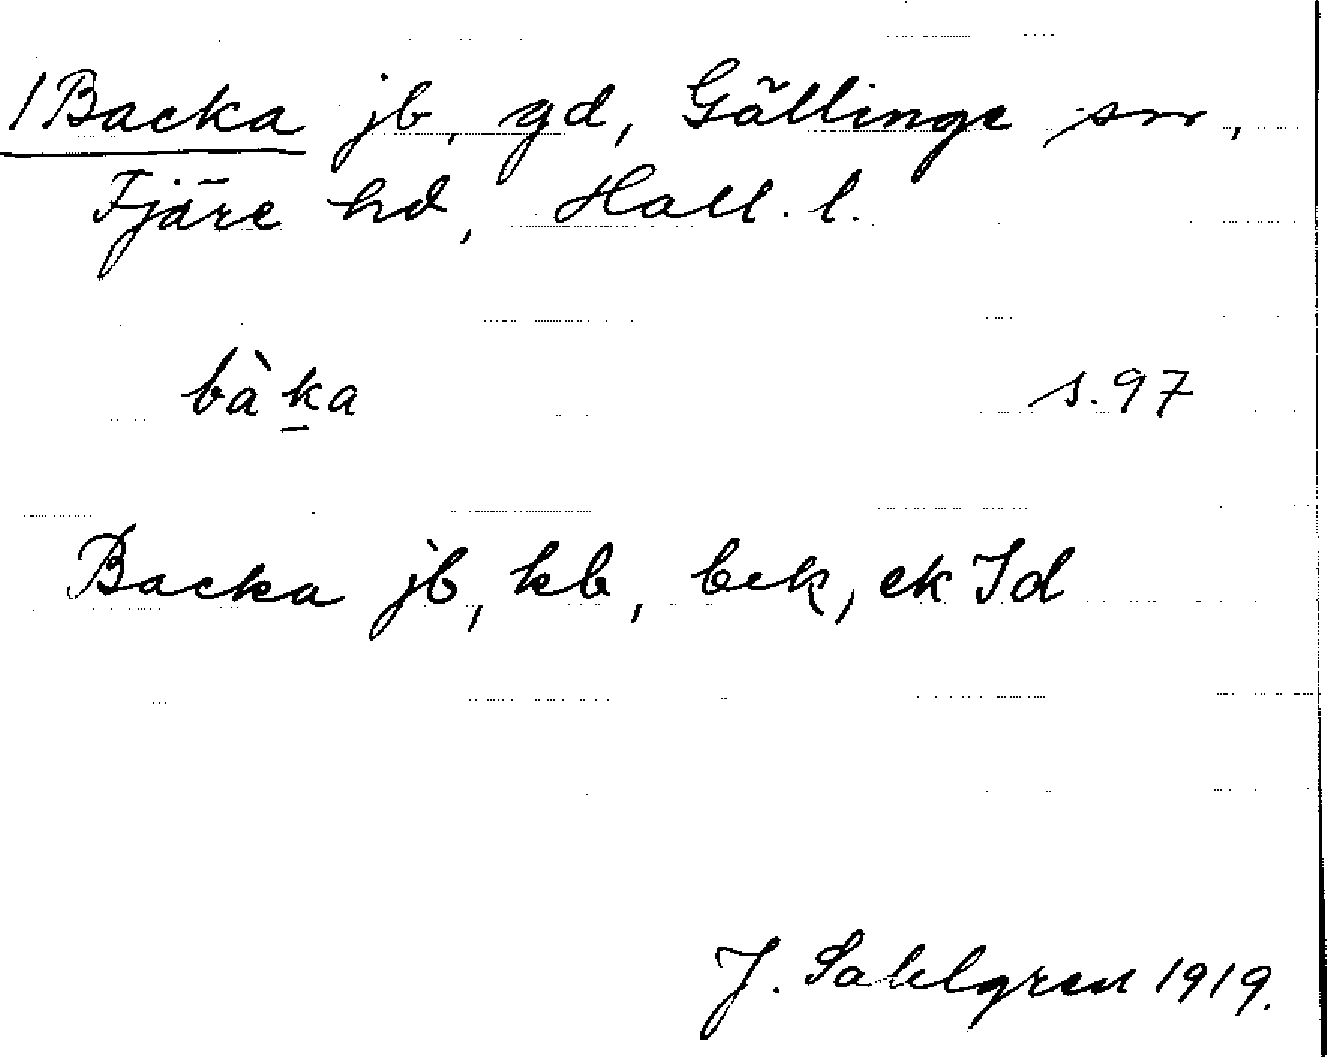 1 Backa jb, gd, Gällinge sn,
Fjäre hd, Hall. l.
bàḵa s. 97
Backa jb, kb, bek, ek Id
J. Sahlgren 1919.